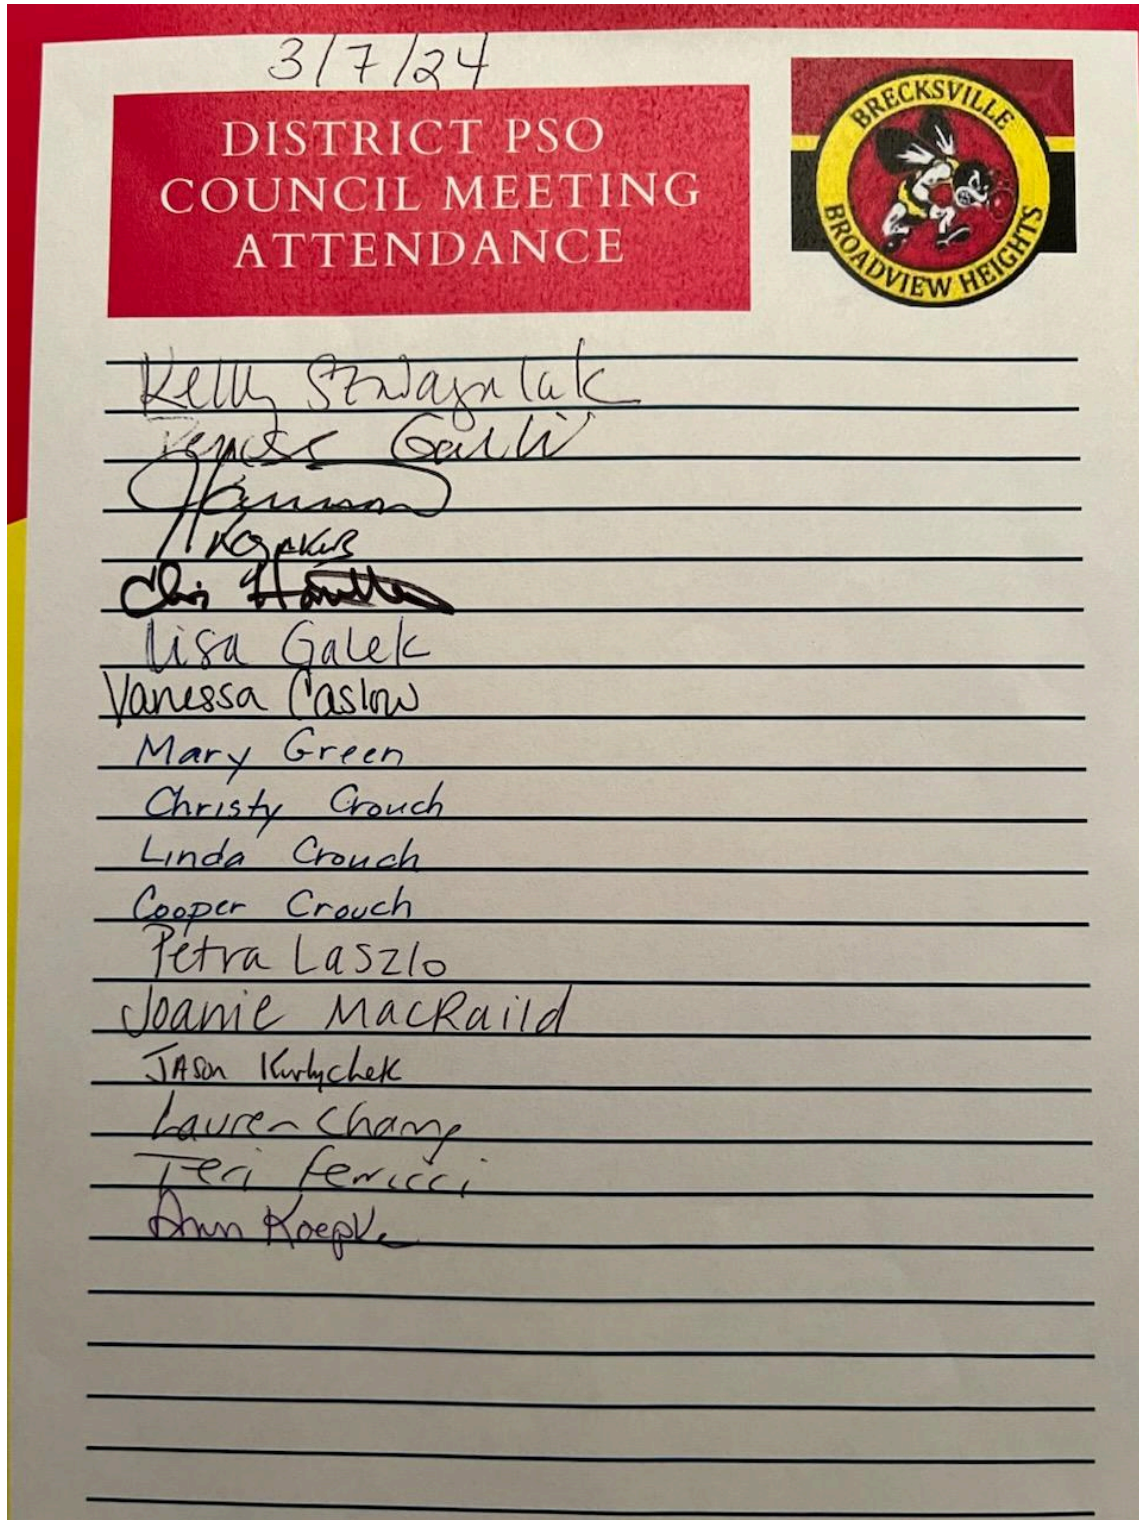 3/7/24
DISTRICT PSO
COUNCIL MEETING
ATTENDANCE
BRECKSVILLE
BROADVIEW HEIGHTS
Kelly
Denise Galli
Chris
Lisa Galek
Vanessa Caslow
Mary Green
Christy Crouch
Linda Crouch
Cooper Crouch
Petra Laszlo
Joanie MacRaild
JASon Kurlychek
Lauren Champ
Teri
Ann Koepke